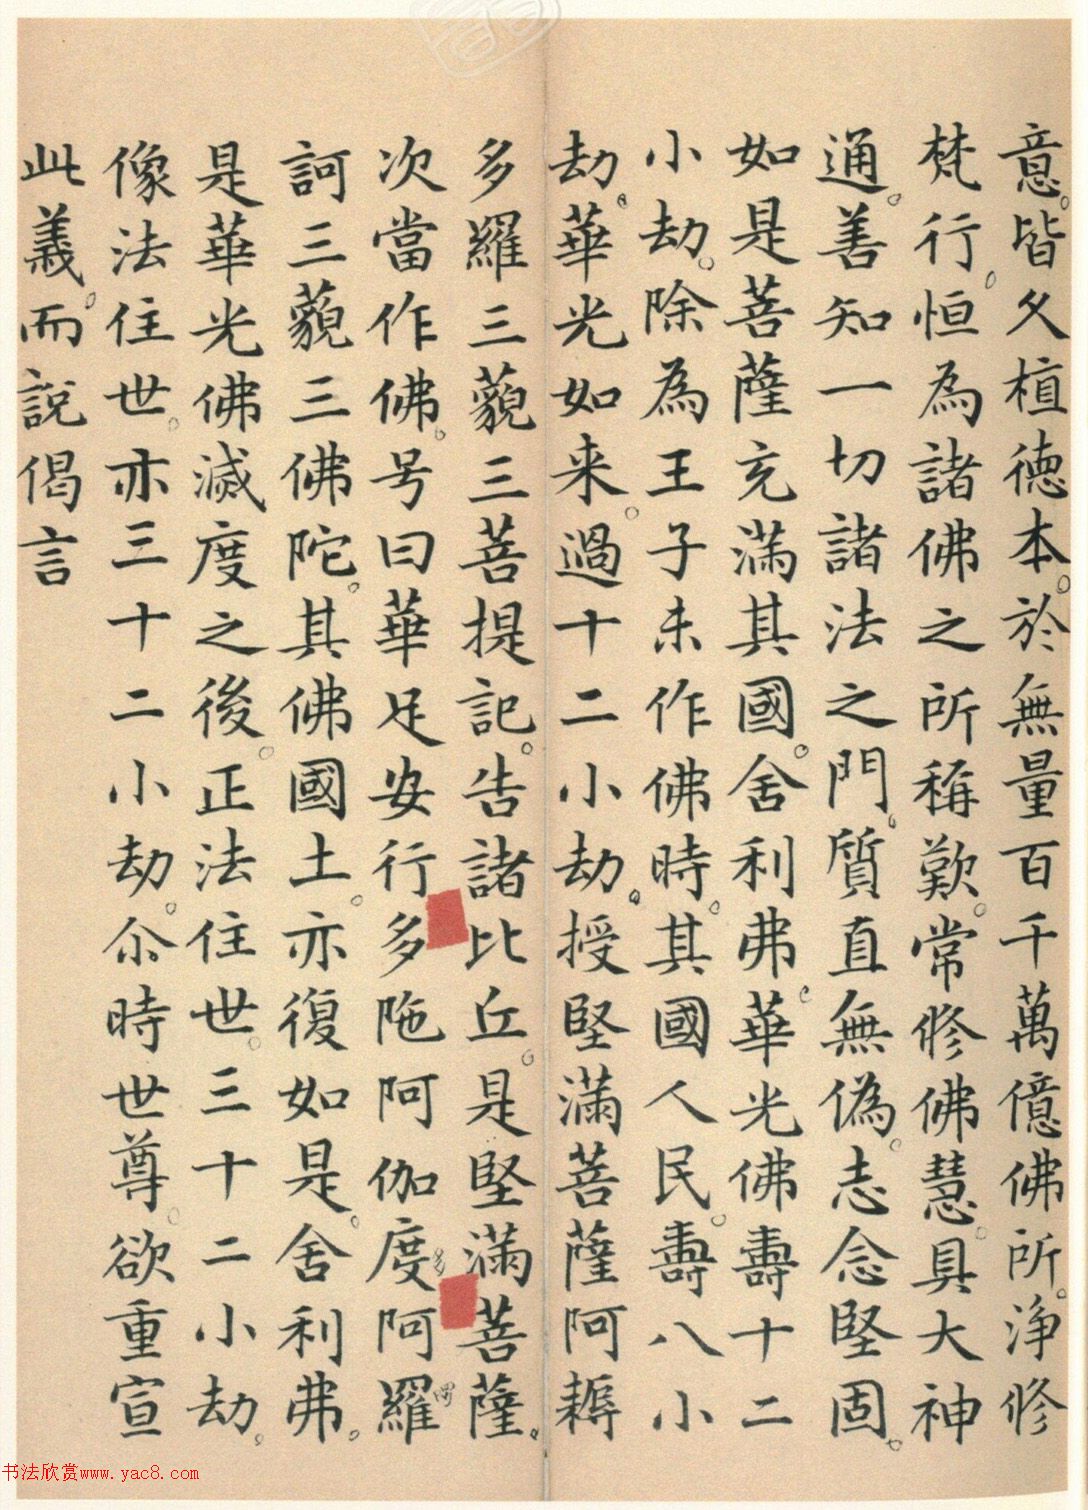 意。皆久植德本。於無量百千萬億佛所。淨修
梵行。恒為諸佛之所稱歎。常修佛慧。具大神
通。善知一切諸法之門。質直無偽。志念堅固。
如是菩薩充滿其國。舍利弗。華光佛壽十二
小劫。除為王子未作佛時。其國人民。壽八小
劫。華光如来。過十二小劫。授堅滿菩薩阿耨
多羅三藐三菩提記。告諸比丘。是堅滿菩薩。
次當作佛。号曰華足安行多陁阿伽度阿羅
訶三藐三佛陀。其佛國土。亦復如是。舍利弗。
是華光佛滅度之後。正法住世。三十二小劫。
像法住世。亦三十二小劫。尒時世尊。欲重宣
此義。而說偈言
书法欣赏www.yac8.com